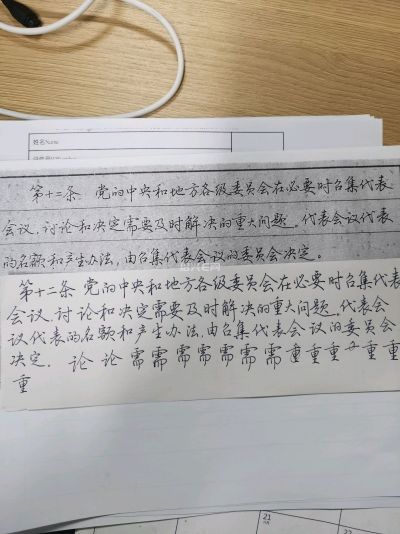 姓名Name
第十二条 党的中央和地方各级委员会在必要时召集代表
会议，讨论和决定需要及时解决的重大问题。代表会议代表
的名额和产生办法，由召集代表会议的委员会决定。
第十二条 党的中央和地方各级委员会在必要时召集代表
会议，讨论和决定需要及时解决的重大问题，代表会
议代表的名额和产生办法，由召集代表会议的委员会
决定. 论 论 需 需 需 需 需 需 需 重 重 重 重 重
重
21